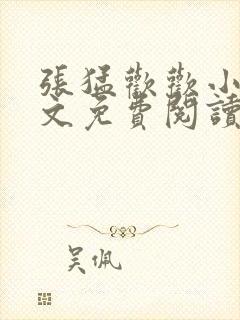 張猛歡歡小
文免費閱讀
吴佩